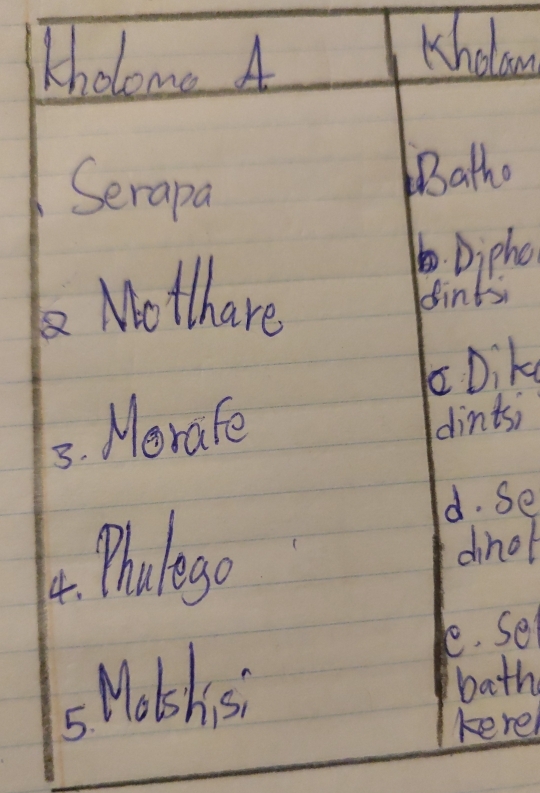 Kholomo A
Kholom
Serapa
Batho
2 Motlhare
b. Dipho
dintsi
3. Morafe
c. Dik
dintsi
4. Phulego
d. Se
dinot
5. Motshisi
e. Set
batho
kerek